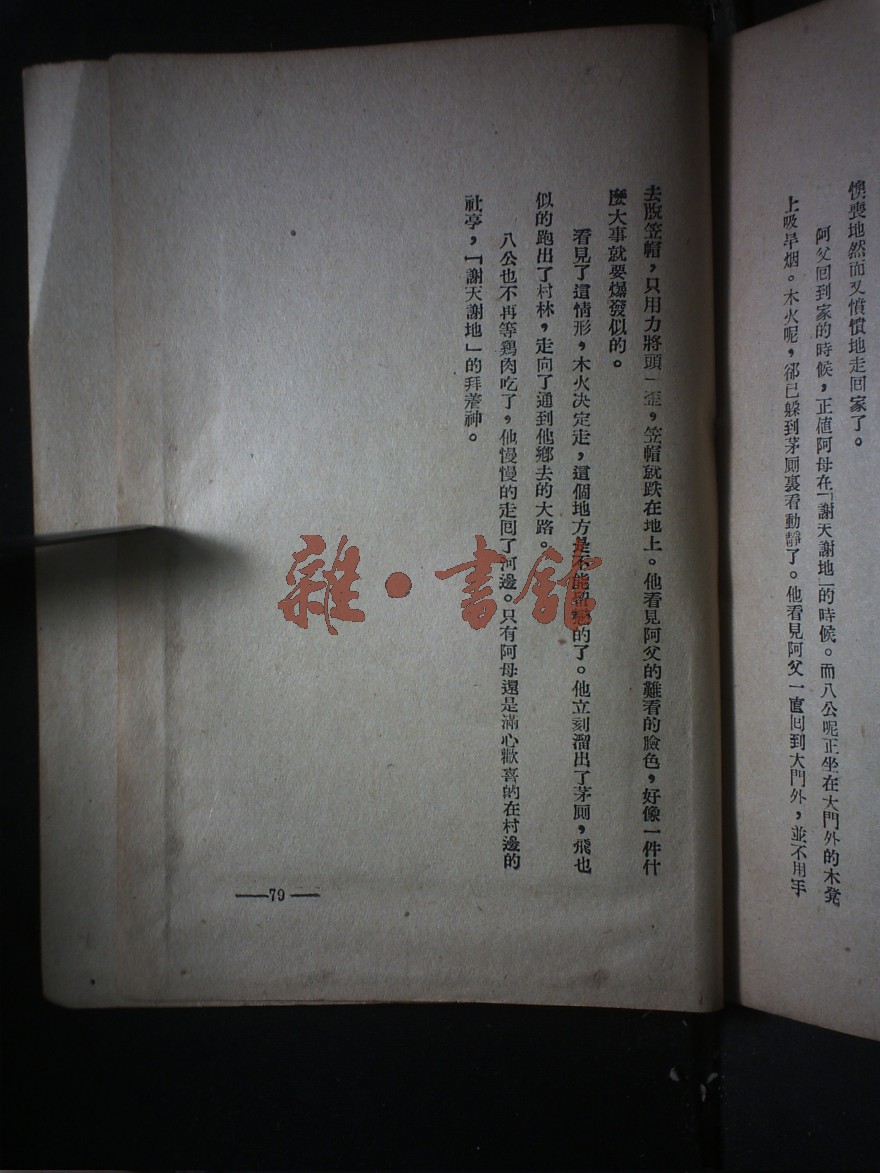 懊喪地然而又憤慣地走回家了。
阿父回到家的時候，正值阿母在「謝天謝地」的時候。而八公呢正坐在大門外的木凳
上吸旱烟。木火呢，却已躱到茅厠裏看動靜了。他看見阿父一直回到大門外，並不用手
去脫笠帽，只用力將頭一歪，笠帽就跌在地上。他看見阿父的難看的臉色，好像一件什
麽大事就要爆發似的。
看見了這情形，木火決定走，這個地方是不能留戀的了。他立刻溜出了茅厠，飛也
似的跑出了村林，走向了通到他鄉去的大路。
八公也不再等鷄肉吃了，他慢慢的走回了河邊。只有阿母還是滿心歡喜的在村邊的
社亭，「謝天謝地」的拜着神。
——79——
雜·書館